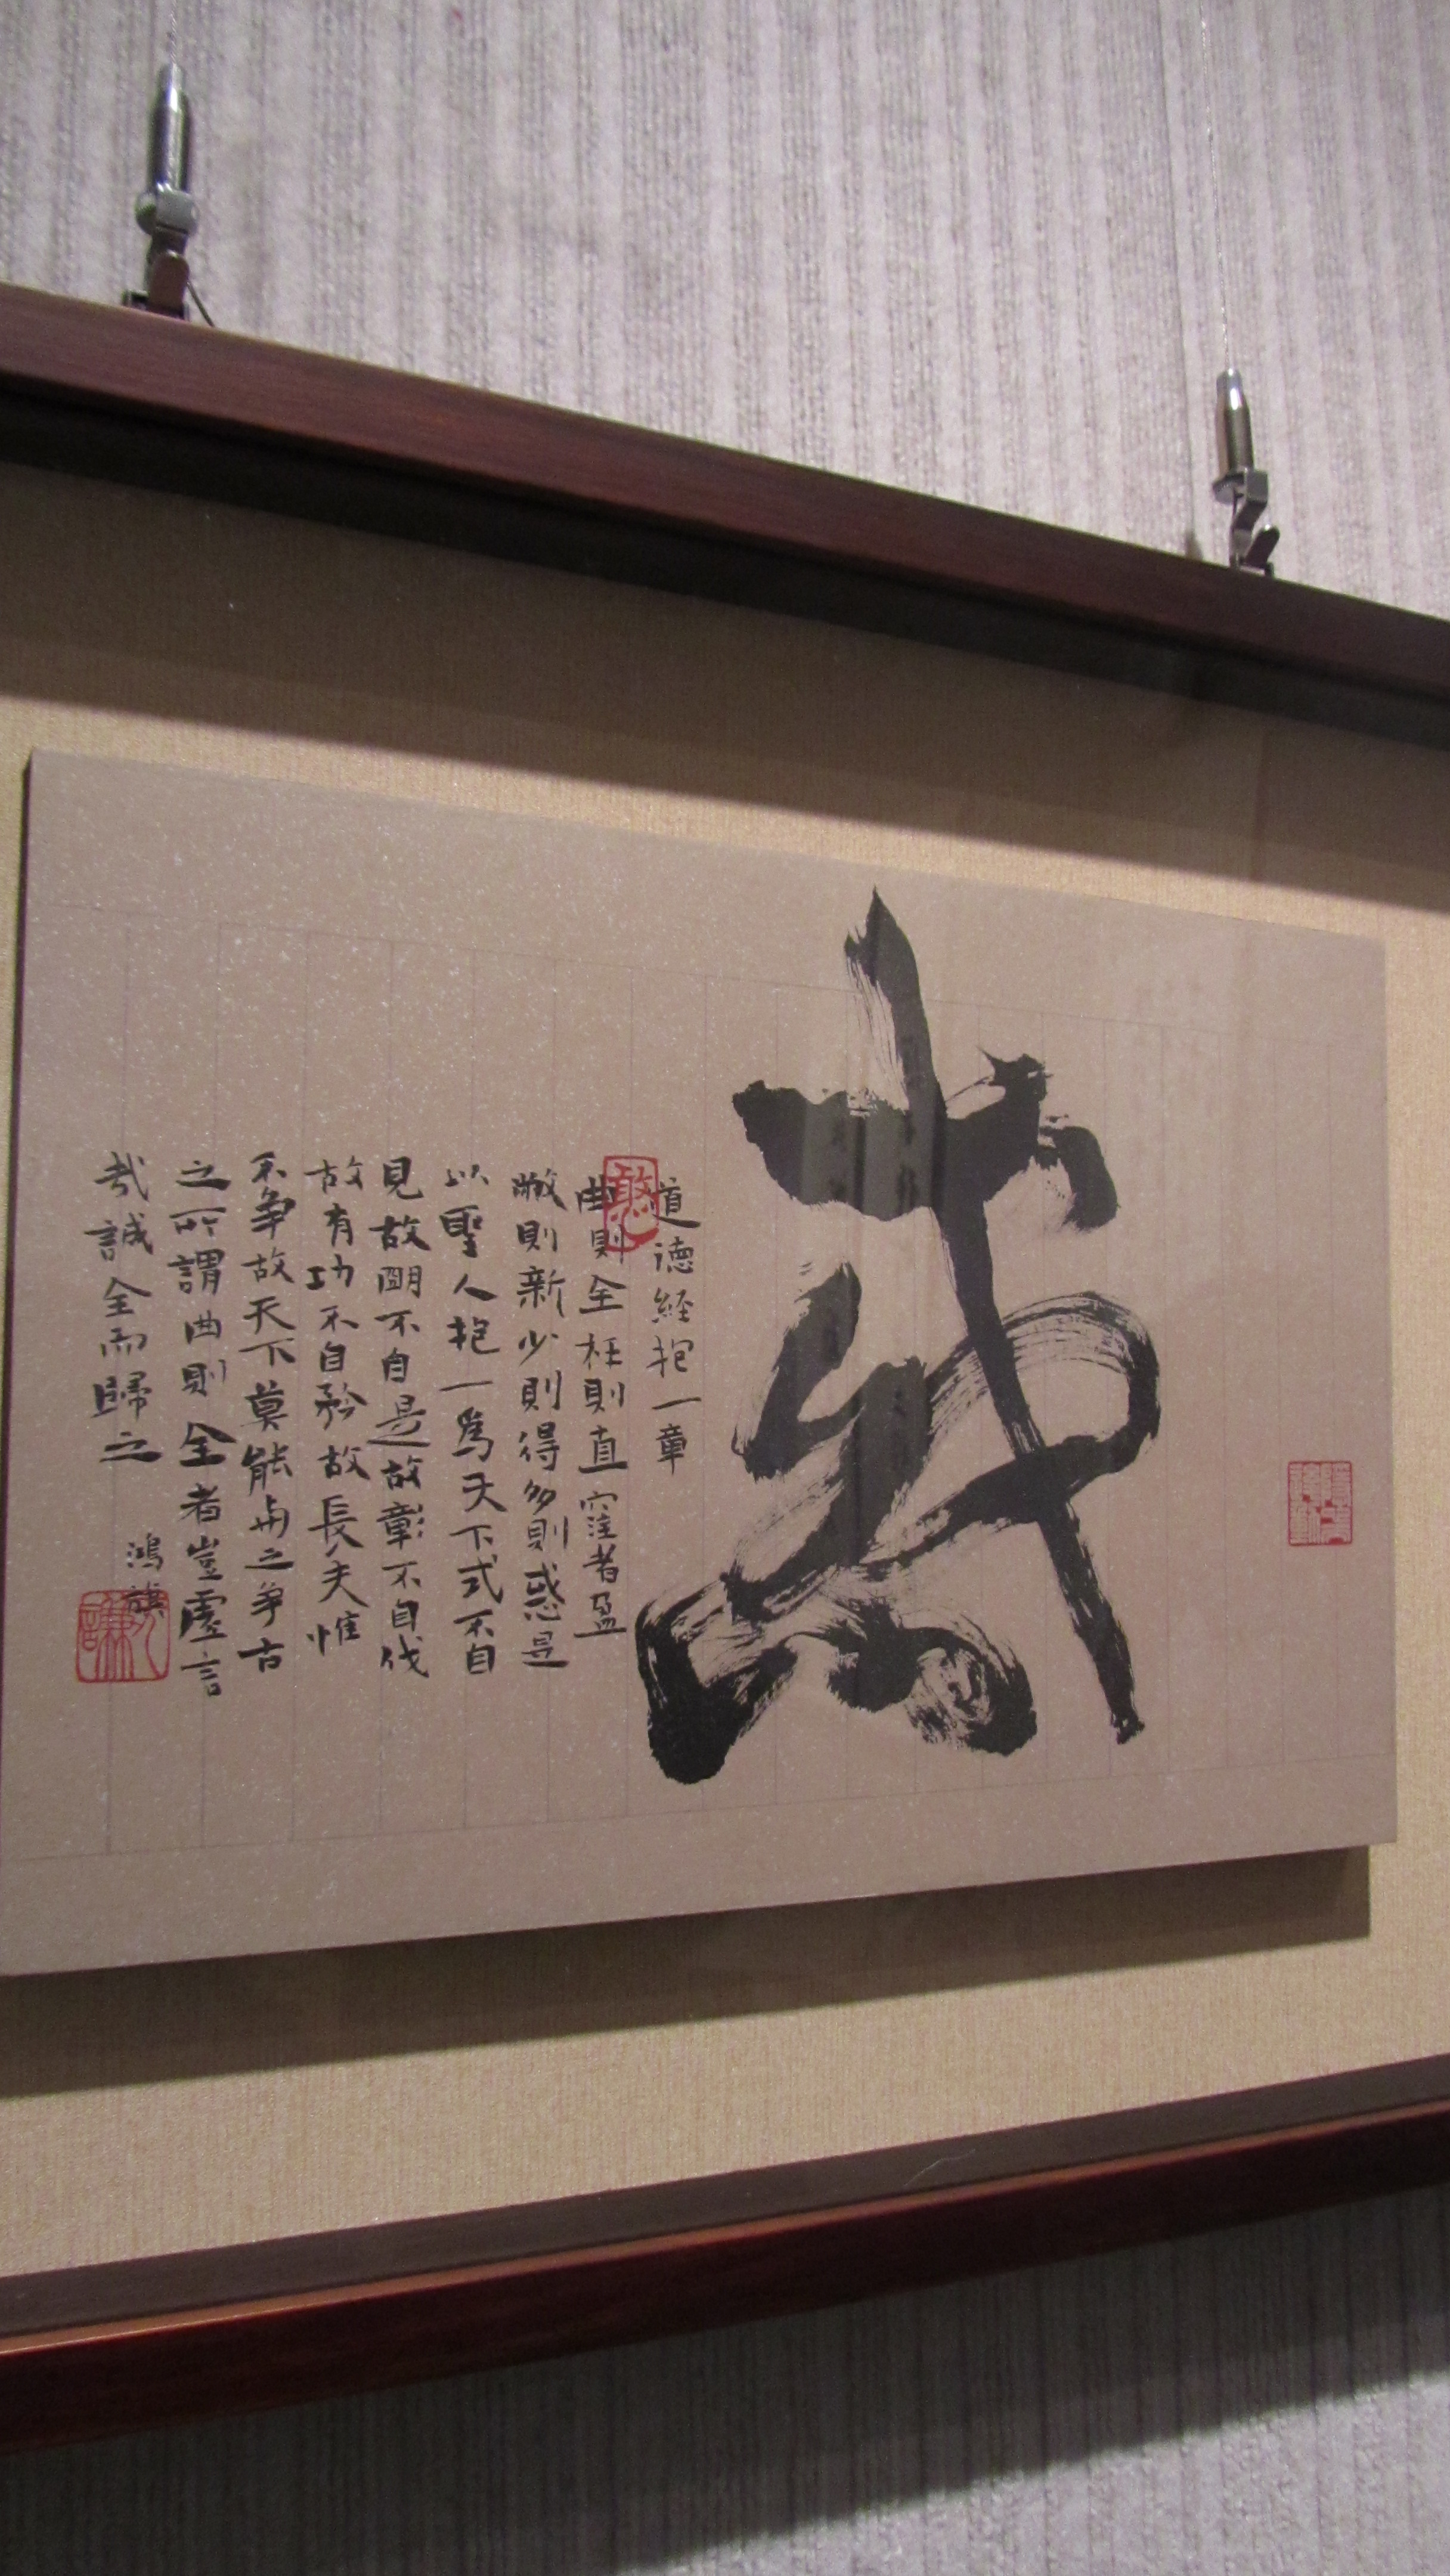 道徳経抱一章
曲則全枉則直窪者盈
敝則新少則得多則惑是
以聖人抱一為天下式不自
見故明不自是故彰不自伐
故有功不自矜故長夫惟
不爭故天下莫能与之爭古
之所謂曲則全者豈虛言
哉誠全而歸之 鴻旗
憨